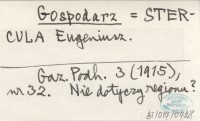 Gospodarz = STER-
CULA Eugeniusz.
Gaz. Podh. 3 (1915),
nr 32. Nie dotyczy regionu?